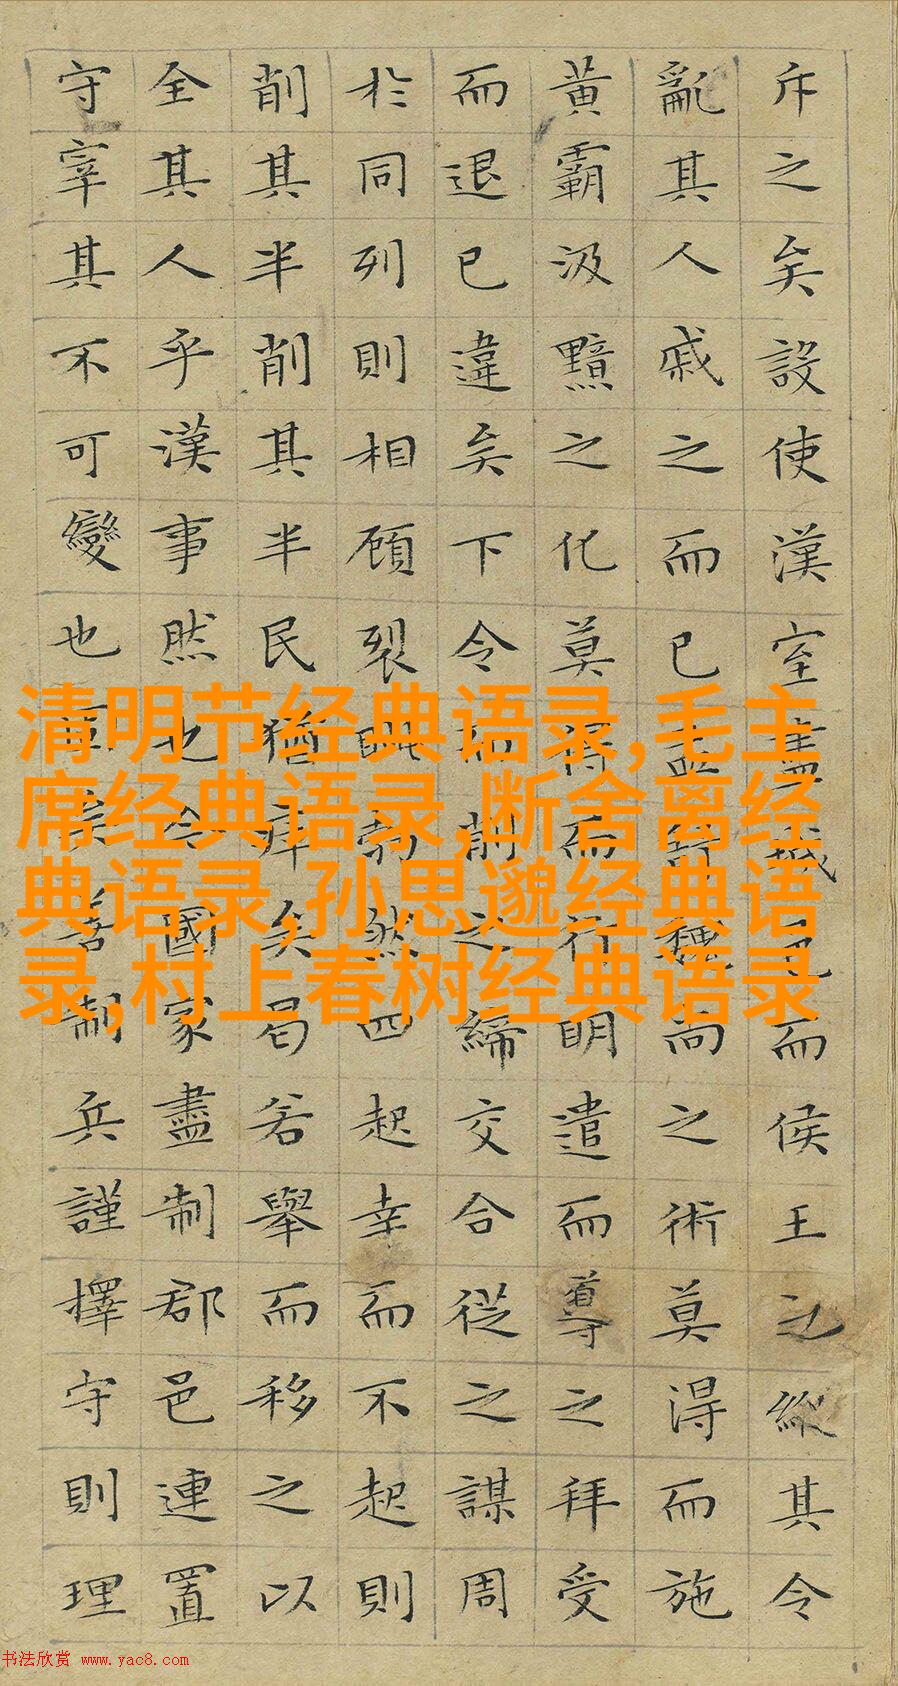 斥之矣設使漢室盡城邑而侯王之縱其令
亂其人戚之而已孟舒魏尚之術莫得而施
黃霸汲黯之化莫得而行明遣而導之拜受
而退已違矣下令而削之締交合從之謀周
於同列則相顧裂眦勃然四起幸而不起則
削其半削其半民猶瘁矣曷若舉而移之以
全其人乎漢事然也今國家盡制郡邑連置
守宰其不可變也善制兵謹擇守則理
清明节经典语录,毛主
席经典语录,断舍离经
典语录,孙思邈经典语
录,村上春树经典语录
书法欣赏 www.yac8.com